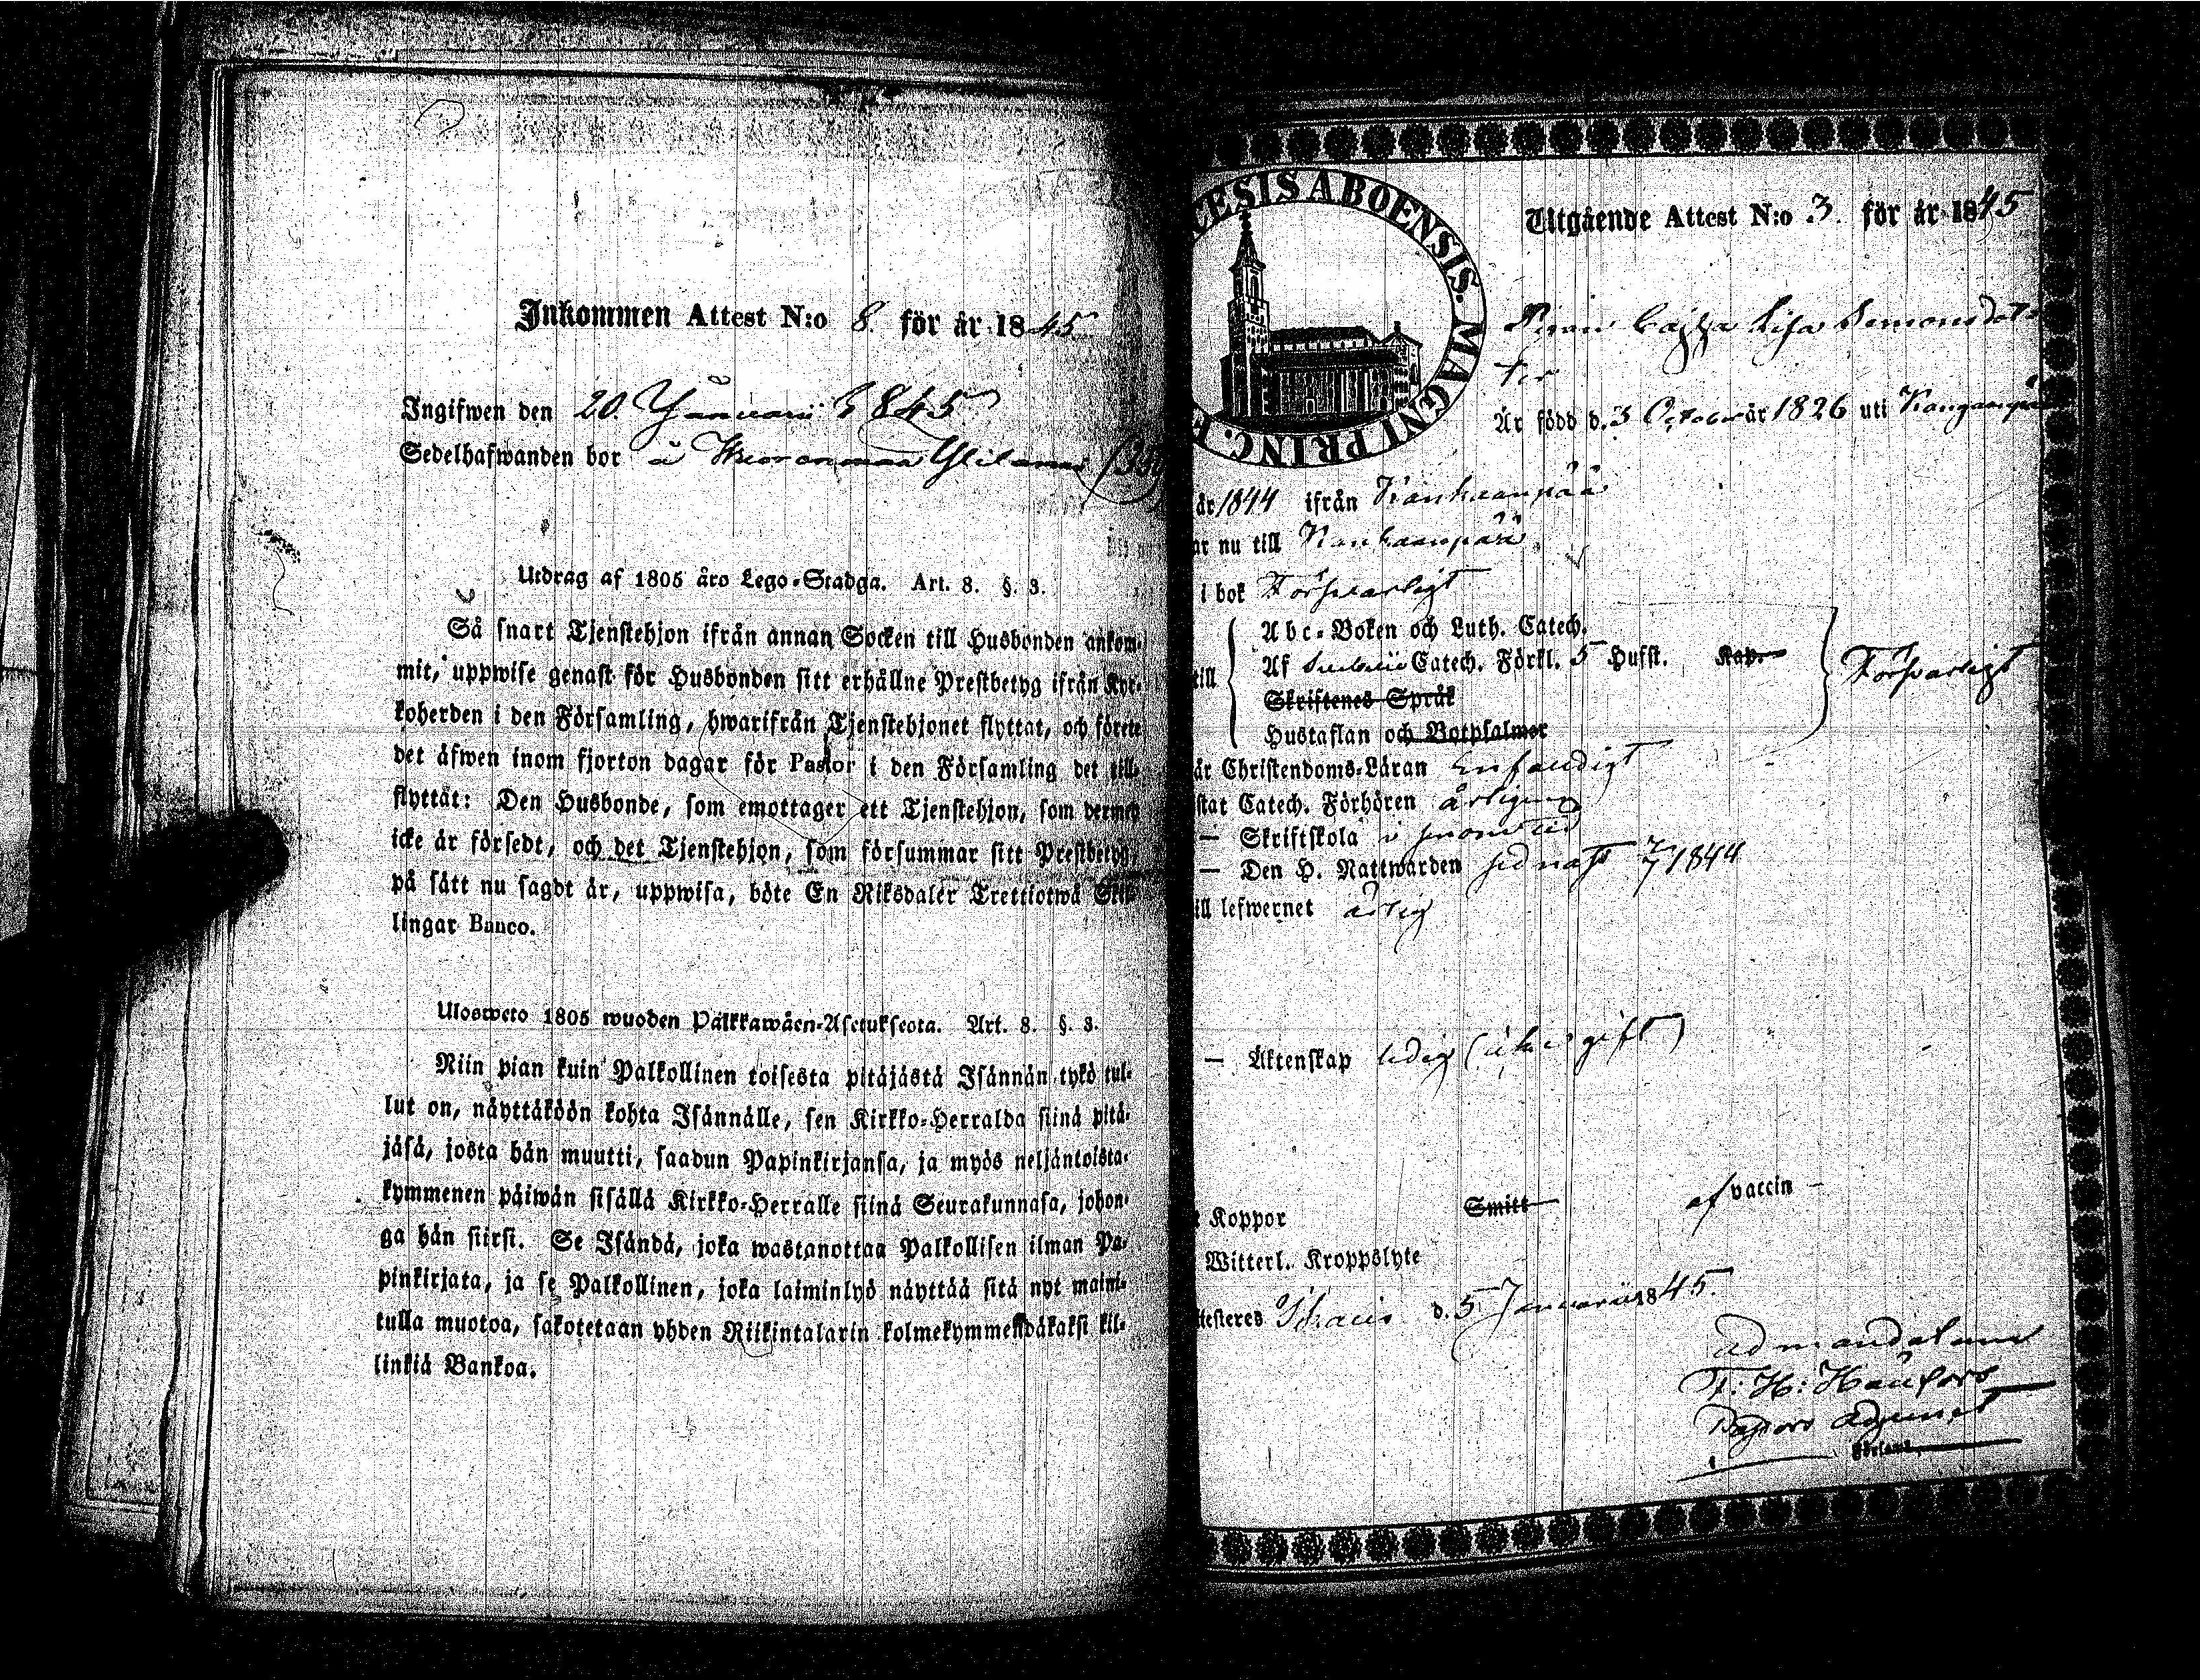 Inkommen Attest N:o 8. för år 1845
Ingifwen den 20. Januarii 1845
Sedelhafwanden bor å
Utdrag af 1805 års Lego-Stadga. Art. 8. §. 3.
Så snart Tjenstehjon ifrån annan Socken till Husbonden ankom-
mit, uppwise genast för Husbonden sitt erhållne Prestbetyg ifrån Kyr-
koherden i den Församling, hwarifrån Tjenstehjonet flyttat, och förete
det äfwen inom fjorton dagar för Pastor i den Församling det till-
flyttat: Den Husbonde, som emottager ett Tjenstehjon, som dermed
icke är försedt, och det Tjenstehjon, som försummar sitt Prestbetyg,
på sätt nu sagdt är, uppwisa, böte En Riksdaler Trettiotwå Skil-
lingar Banco.
Ulosweto 1805 wuoden Palkkawäen-Asetuksesta. Art. 8. §. 3.
Niin pian kuin Palkollinen toisesta pitäjästä Isännän tykö tul-
lut on, näyttäköön kohta Isännälle, sen Kirkko-Herralda siinä pitä-
jäsä, josta hän muutti, saadun Papinkirjansa, ja myös neljäntoista-
kymmenen päiwän sisällä Kirkko-Herralle siinä Seurakunnasa, johon-
ga hän siirsi. Se Isändä, joka wastanottaa Palkollisen ilman Pa-
pinkirjata, ja se Palkollinen, joka laiminlyö näyttää sitä nyt maini-
tulla muotoa, sakotetaan yhden Riikintalarin kolmekymmendäkaksi kil-
linkiä Bankoa.
CESIS ABOENSIS. MAGNI PRINC. F
Utgående Attest N:o 3. för år 1845
Pigan Cajsa Lisa Simonsdot-
ter
Är född d. 3 October år 1826 uti Kangaanpää
år 1844 ifrån Kankaanpää
ar nu till Kankaanpää
i bok Försvarligt
till
Abc-Boken och Luth. Catech.
Af Catech. Förkl. 5 Hufst. Kap.
Skriftenes Språk
Hustaflan och Botpsalmer
Försvarligt
år Christendoms-Läran Enfaldigt
stat Catech. Förhören årligen
— Skriftskola i sinom tid
— Den H. Nattwarden sednast 7/7 1844
ill lefwernet ärlig
— Äktenskap ledig (icke gift)
t Koppor Smitt af vaccin —
Witterl. Kroppslyte
ttesteres d. 5 Januarii 1845.
ad mandatum